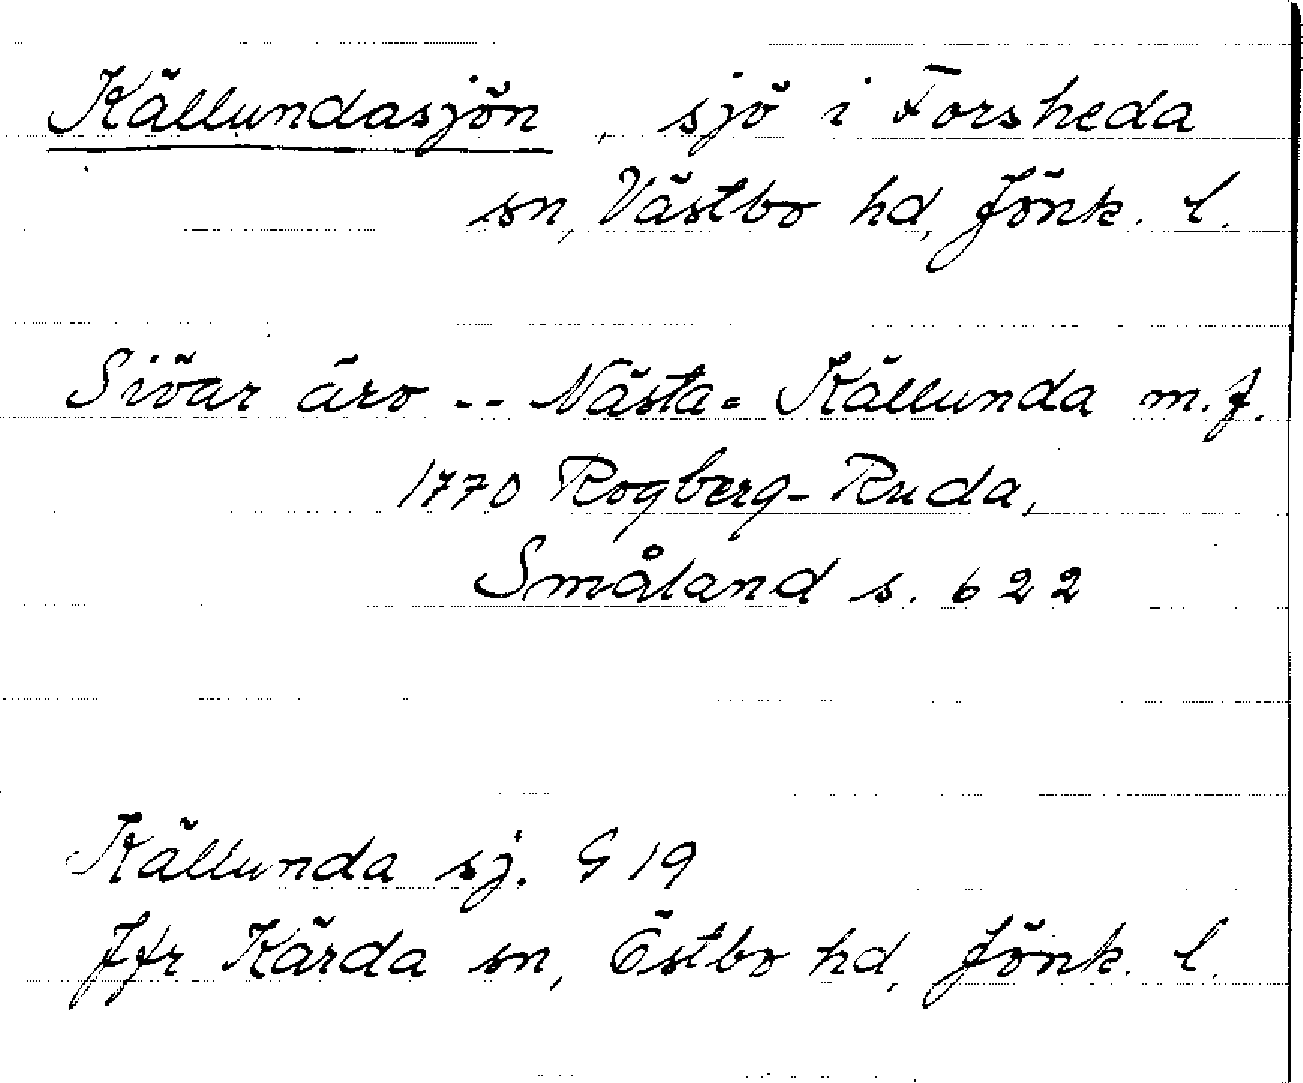 Källundasjön, sjö i Forsheda
sn, Västbo hd, Jönk. l.
Siöar äro -- Nästa= Källunda m.f.
1770 Rogberg-Ruda,
Småland s. 622
Källunda sj. G 19
Jfr Kärda sn, Östbo hd, Jönk. l.